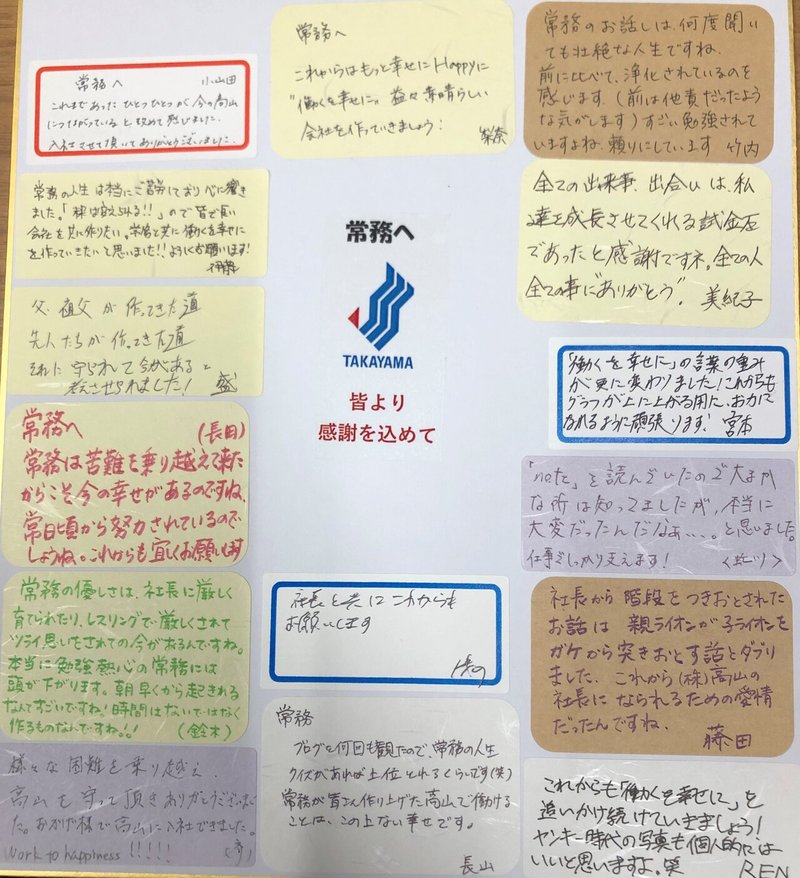 常務へ
TAKAYAMA
皆より
感謝を込めて
常務へ 小山田
これまであった ひとつひとつが 今の高山
につながっている と改めて感じました.
入社させて頂いてありがとうございました.
常務へ
これからはもっと幸せに Happyに
"働くを幸せに" 益々素晴らしい
会社を作っていきましょう!
常務のお話しは、何度聞い
ても壮絶な人生ですね.
前に比べて、浄化されているのを
感じます.(前は他責だったよう
な気がします)すごい勉強されて
いますよね.頼りにしています 竹内
常務の人生は本当に
ました。「 は変えられる!!」ので皆で良い
会社を共に作りたい。常務と共に働くを幸せに
を作っていきたいと思いました!!よろしくお願います!
伊藤
全ての出来事、出会いは、私
達を成長させてくれる試金石
であったと感謝ですネ。全ての人
全ての事に"ありがとう"。美紀子
父、祖父が作ってきた道
先人たちが作ってきた道
それに守られて今がある と
考えさせられました! 盛
「働くを幸せに」の言葉の重み
が更に変わりました!これからも
グラフが上に上がる用に、お力に
なれるように頑張ります! 宮本
常務へ (長田)
常務は苦難を乗り越えて来た
からこそ今の幸せがあるのですね、
常日頃から努力されているので
しょうね。これからも宜しくお願いします
「note」を読んでいたので大まか
な所は知ってましたが、本当に
大変だったんだなぁ....と思いました。
仕事でしっかり支えます!
常務の優しさは、社長に厳しく
育てられたり、レスリングで厳しくされて
ツライ思いをされての今があるんですね。
本当に勉強熱心の常務には
頭が下がります。朝早くから起きれる
なんてすごいですね!時間はないではなく
作るものなんですね。! (鈴木)
社長と共にこれからも
お願いします
社長から階段をつきおとされた
お話は 親ライオンが子ライオンを
ガケから突きおとす話とダブり
ました、これから(株)高山の
社長になられるための愛情
だったんですね、
藤田
常務
ブログを何回も観たので、常務の人生
クイズがあれば上位とれるくらいです(笑)
常務が皆さんと作り上げた高山で働ける
ことは、この上ない幸せです。
長山
様々な困難を乗り越え
高山を守って頂きありがとうございまし
た。おかげ様で高山に入社できました。
Work to happiness !!!!!
これからも「働くを幸せに」を
追いかけ続けていきましょう!
ヤンキー時代の写真も個人的には
いいと思いますよ。笑 REN